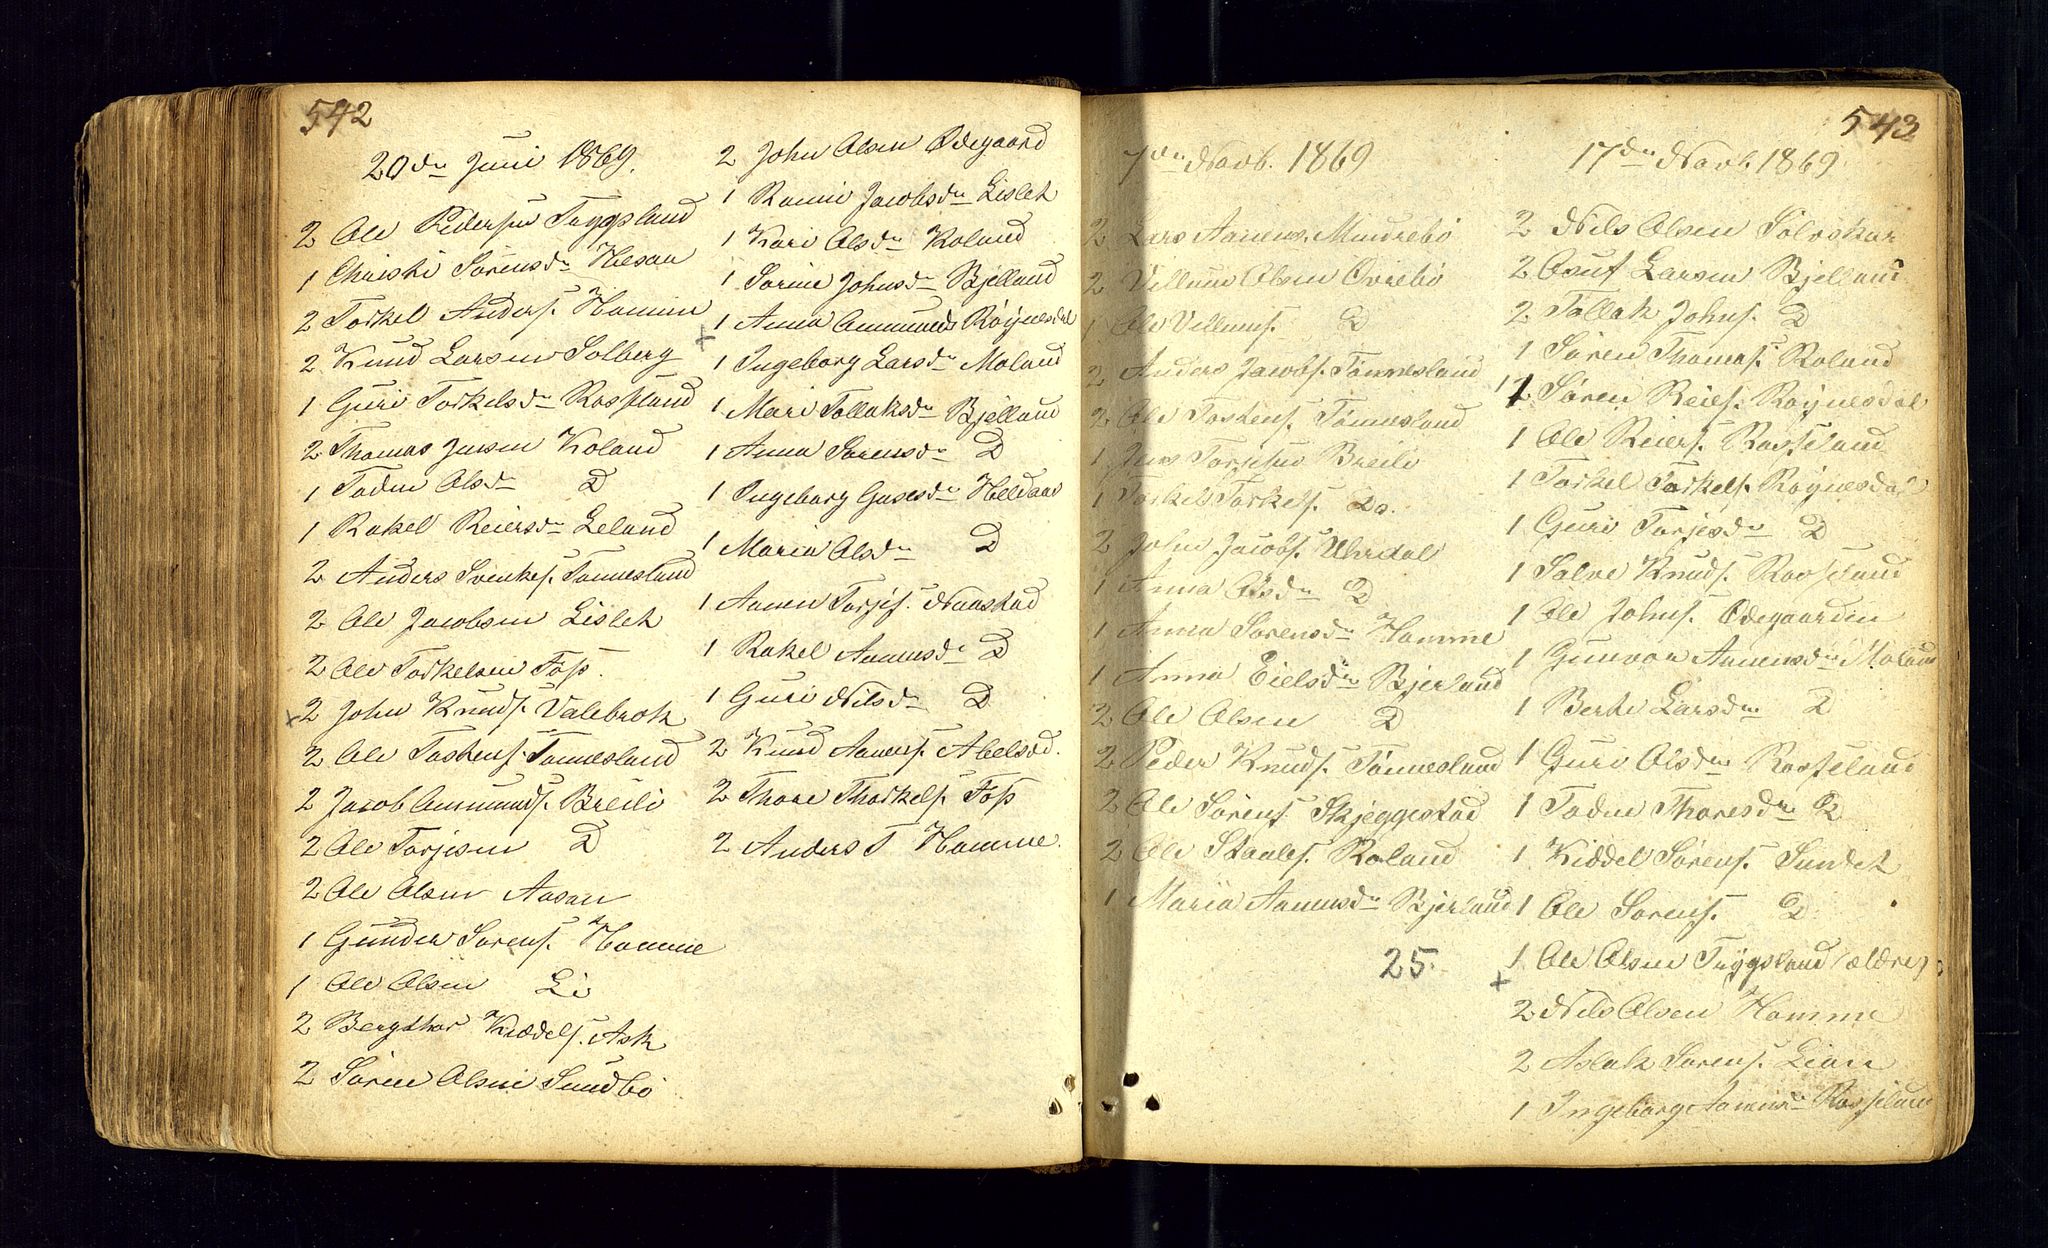 542
20de Juni 1869.
2 Ole Pedersen Tryggsland
1 Christi Sørensdr Hesaa
2 Torkel Anders. Homme
2 Knud Larsen Solberg
1 Guri Torkelsdr Rosseland
2 Thomas Jensen Roland
1 Todne Olsdr D
1 Rakel Reiersdr Leland
2 Anders Svenkes. Tønnesland
2 Ole Jacobsen Lislet
2 Ole Torkelsen Foss.
x 2 John Knuds. Valebrok
2 Ole Taskens. Tønnesland
2 Jacob Ammunds. Breili
2 Ole Torjesen D
2 Ole Olsen Aasan
1 Gunder Sørens. Homme
1 Ole Olsen Li
2 Bergthor Kiddels. Ask
2 Søren Olsen Sundbø
2 John Olsen Ødegaard
1 Ronnie Jacobsdr Lislet
1 Kari Olsdr Roland
1 Sørine Johnsdr Bjelland
+ 1 Anna Ammundsd Røynesdal
1 Ingeborg Larsdr Moland
1 Mari Tollaksdr Bjelland
1 Anna Sørensdr D
1 Ingeborg Gusesdr Heldaas
1 Maria Olsdr D
1 Aanen Torjes. Naastad
1 Rakel Aanensdr D
1 Guri Nilsdr D
2 Knud Aanens. Abelsød.
2 Thore Thorkels. Foss
2 Anders T Homme.
543
7de Novb. 1869
2 Lars Aanens. Mindrebø
2 Villum Olsen Øvrebø
1 Ole Villums. D
2 Anders Jacobs. Tønnesland
2 Ole Taskens. Tønnesland
1 Jens Torjesen Breili
1 Torkel Torkels. Do.
2 John Jacobs. Uhrdal
1 Anna Olsdr D
1 Anna Sørensdr Homme
1 Anna Eielsdr Bjerland
2 Ole Olsen D
2 Peder Knuds. Tønnesland
2 Ole Sørens. Skjeggestad
2 Ole Staales. Roland
1 Maria Aanensdr Bjerland
25.
17de Novb. 1869
2 Nils Olsen Sølvskar
2 Osuf Larsen Bjelland
2 Tollak Johns. D
1 Søren Thomas. Roland
1 Søren Reiers. Røynesdal
1 Ole Reiers. Rosseland
1 Torkel Torkels. Røynesdal
1 Guri Torjesdr D
1 Salve Knuds. Rosseland
1 Ole Johns. Ødegaarden
1 Gunvor Aanensdr Moland
1 Berte Larsdr D
1 Guri Olsdr Rosseland
1 Todne Thoresdr D
1 Kiddel Sørens. Sundet
1 Ole Sørens. D
+ 1 Ole Olsen Tryggsland (ældre)
2 Nils Olsen Homme
2 Aslak Sørens. Lian
1 Ingeborg Aanensdr Rosseland